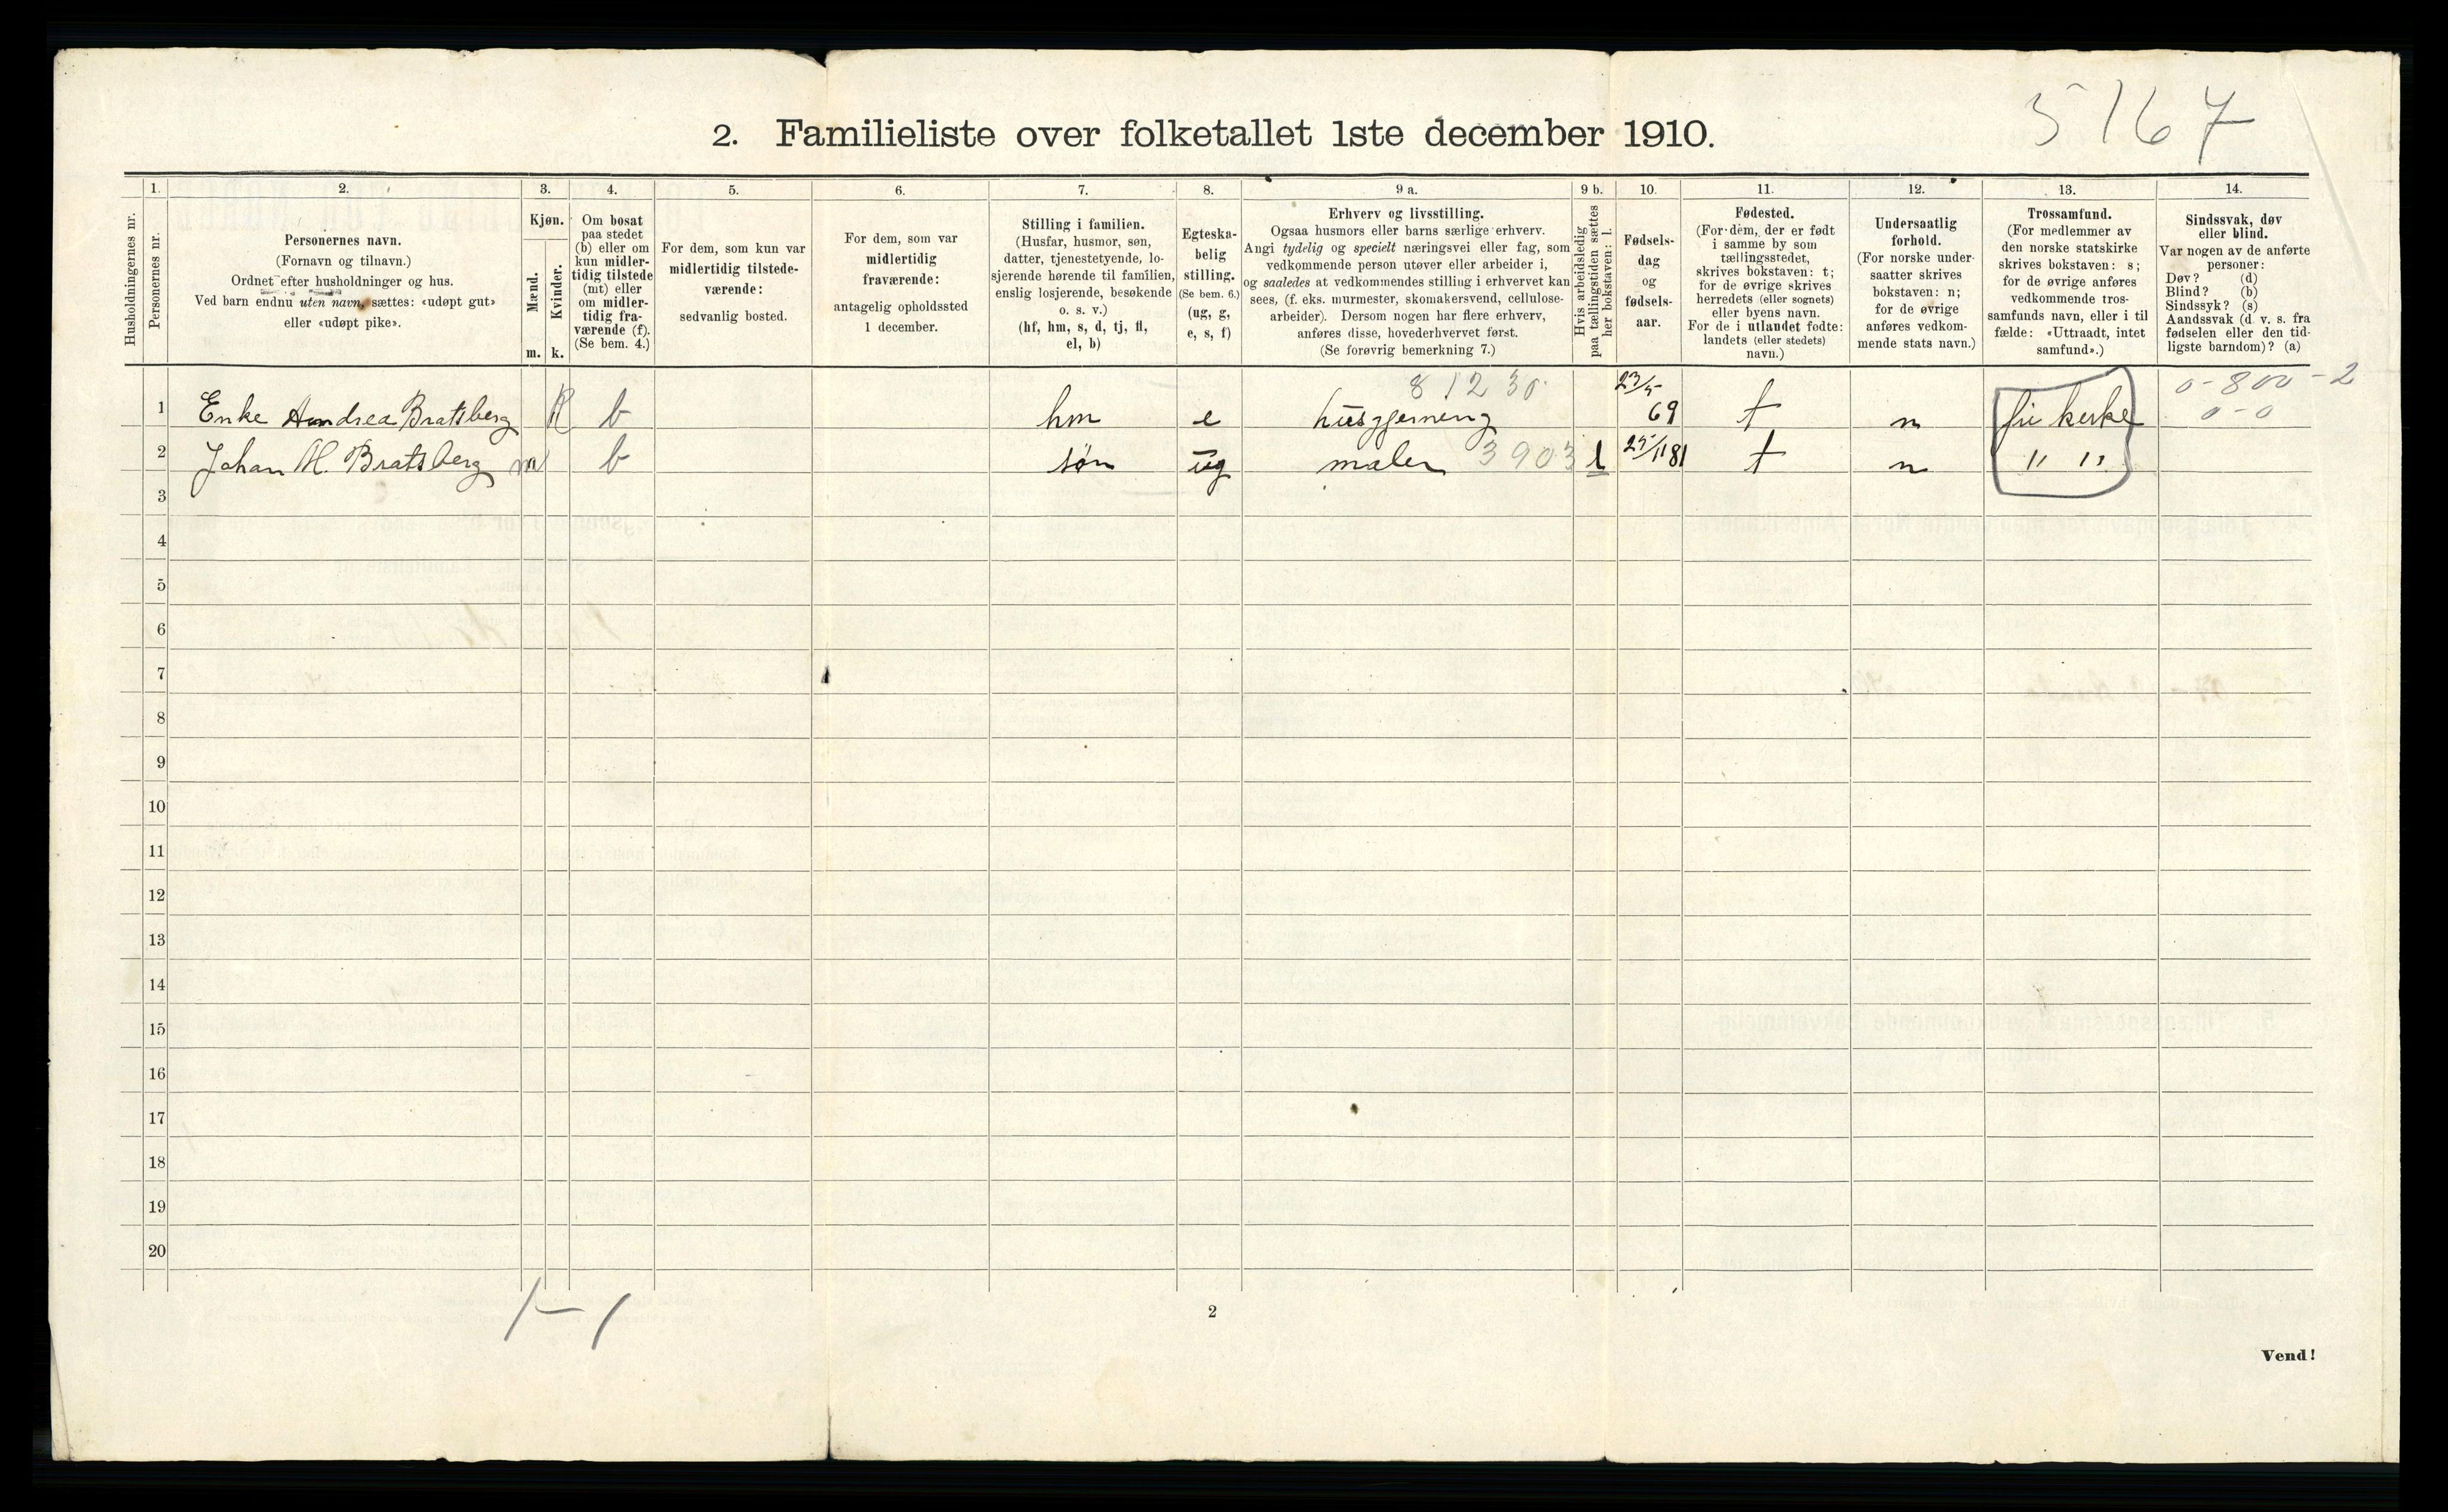 5167
2. Familieliste over folketallet 1ste december 1910.
Husholdningernes nr.
1.
Personernes nr.
2.
Personernes navn.
(Fornavn og tilnavn.)
Ordnet efter husholdninger og hus.
Ved barn endnu uten navn, sættes: «udøpt gut»
eller «udøpt pike».
3.
Kjøn.
Mænd.
Kvinder.
m. k.
4.
Om bosat
paa stedet
(b) eller om
kun midler-
tidig tilstede
(mt) eller
om midler-
tidig fra-
værende (f).
(Se bem. 4.)
5.
For dem, som kun var
midlertidig tilstede-
værende:
sedvanlig bosted.
6.
For dem, som var
midlertidig
fraværende:
antagelig opholdssted
1 december.
7.
Stilling i familien.
(Husfar, husmor, søn,
datter, tjenestetyende, lo-
sjerende hørende til familien,
enslig losjerende, besøkende
o. s. v.)
(hf, hm, s, d, tj, fl,
el, b)
8.
Egteska-
belig
stilling.
(Se bem. 6.)
(ug, g,
e, s, f)
9 a.
Erhverv og livsstilling.
Ogsaa husmors eller barns særlige erhverv.
Angi tydelig og specielt næringsvei eller fag, som
vedkommende person utøver eller arbeider i,
og saaledes at vedkommendes stilling i erhvervet kan
sees, (f. eks. murmester, skomakersvend, cellulose-
arbeider). Dersom nogen har flere erhverv,
anføres disse, hovederhvervet først.
(Se forøvrig bemerkning 7.)
9 b.
Hvis arbeidsledig
paa tællingstiden sættes
her bokstaven: l.
10.
Fødsels-
dag
og
fødsels-
aar.
11.
Fødested.
(For dem, der er født
i samme by som
tællingsstedet,
skrives bokstaven: t;
for de øvrige skrives
herredets (eller sognets)
eller byens navn.
For de i utlandet fødte:
landets (eller stedets)
navn.)
12.
Undersaatlig
forhold.
(For norske under-
saatter skrives
bokstaven: n;
for de øvrige
anføres vedkom-
mende stats navn.)
13.
Trossamfund.
(For medlemmer av
den norske statskirke
skrives bokstaven: s;
for de øvrige anføres
vedkommende tros-
samfunds navn, eller i til
fælde: «Uttraadt, intet
samfund».)
14.
Sindssvak, døv
eller blind.
Var nogen av de anførte
personer:
Døv? (d)
Blind? (b)
Sindssyk? (s)
Aandssvak (d. v. s. fra
fødselen eller den tid-
ligste barndom)? (a)
81230 0-800-2
1 Enke Andrea Bratsberg K b hm e husgjerneng 23/5 69 t n fri kerke 0-0
2 Johan M. Bratsberg m b søn ug maler 3903 l 25/11 81 t n " "
3
4
5
6
7
8
9
10
11
12
13
14
15
16
17
18
19
20
1-1
2
Vend!